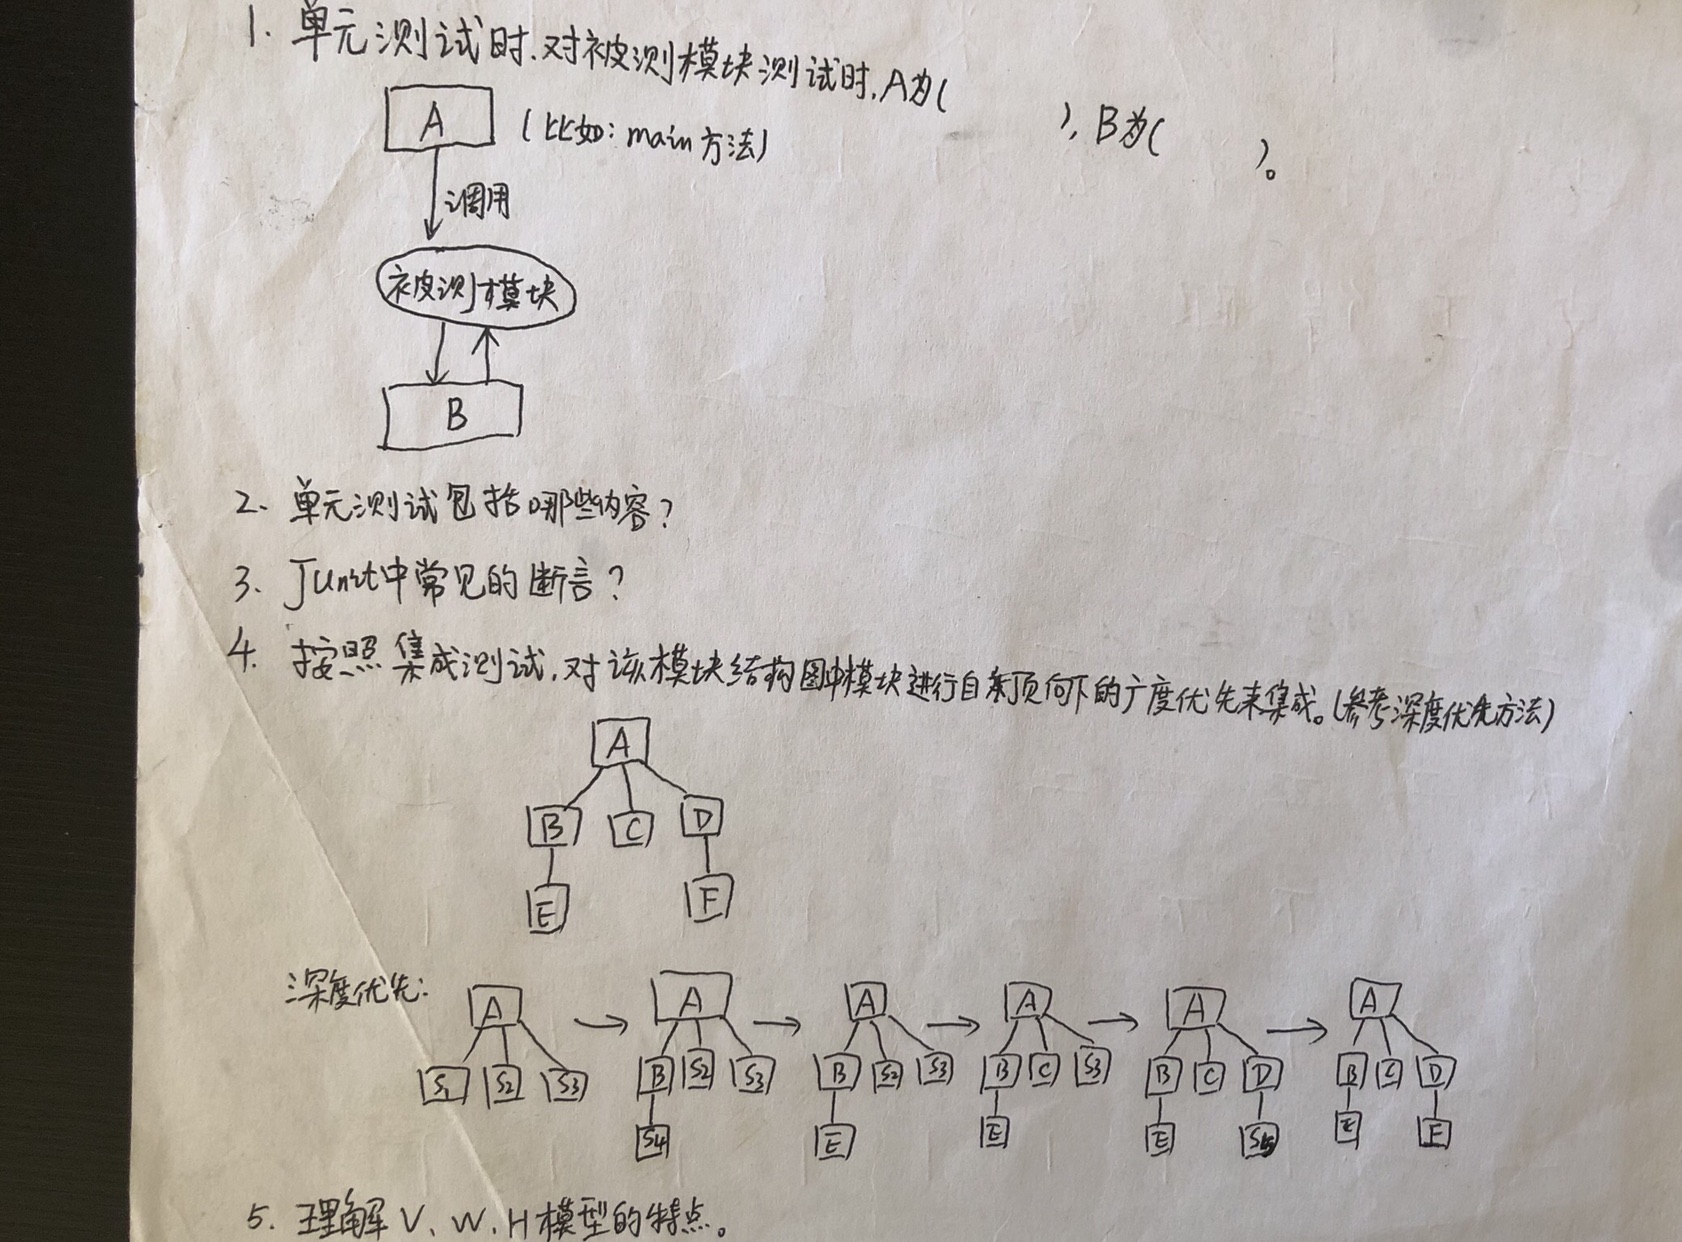 1. 单元测试时,对被测模块测试时,A为( ),B为( )。
A
(比如:main方法)
调用
被测模块
B
2、单元测试包括哪些内容?
3、Junit中常见的断言?
4. 按照集成测试,对该模块结构图中模块进行自顶向下的广度优先来集成。(参考深度优先方法)
A
B C D
E F
深度优先:
A → A → A → A → A → A
S1 S2 S3 B S2 S3 B S2 S3 B C S3 B C D B C D
S4 E E E S5 E F
5. 理解V、W、H模型的特点。